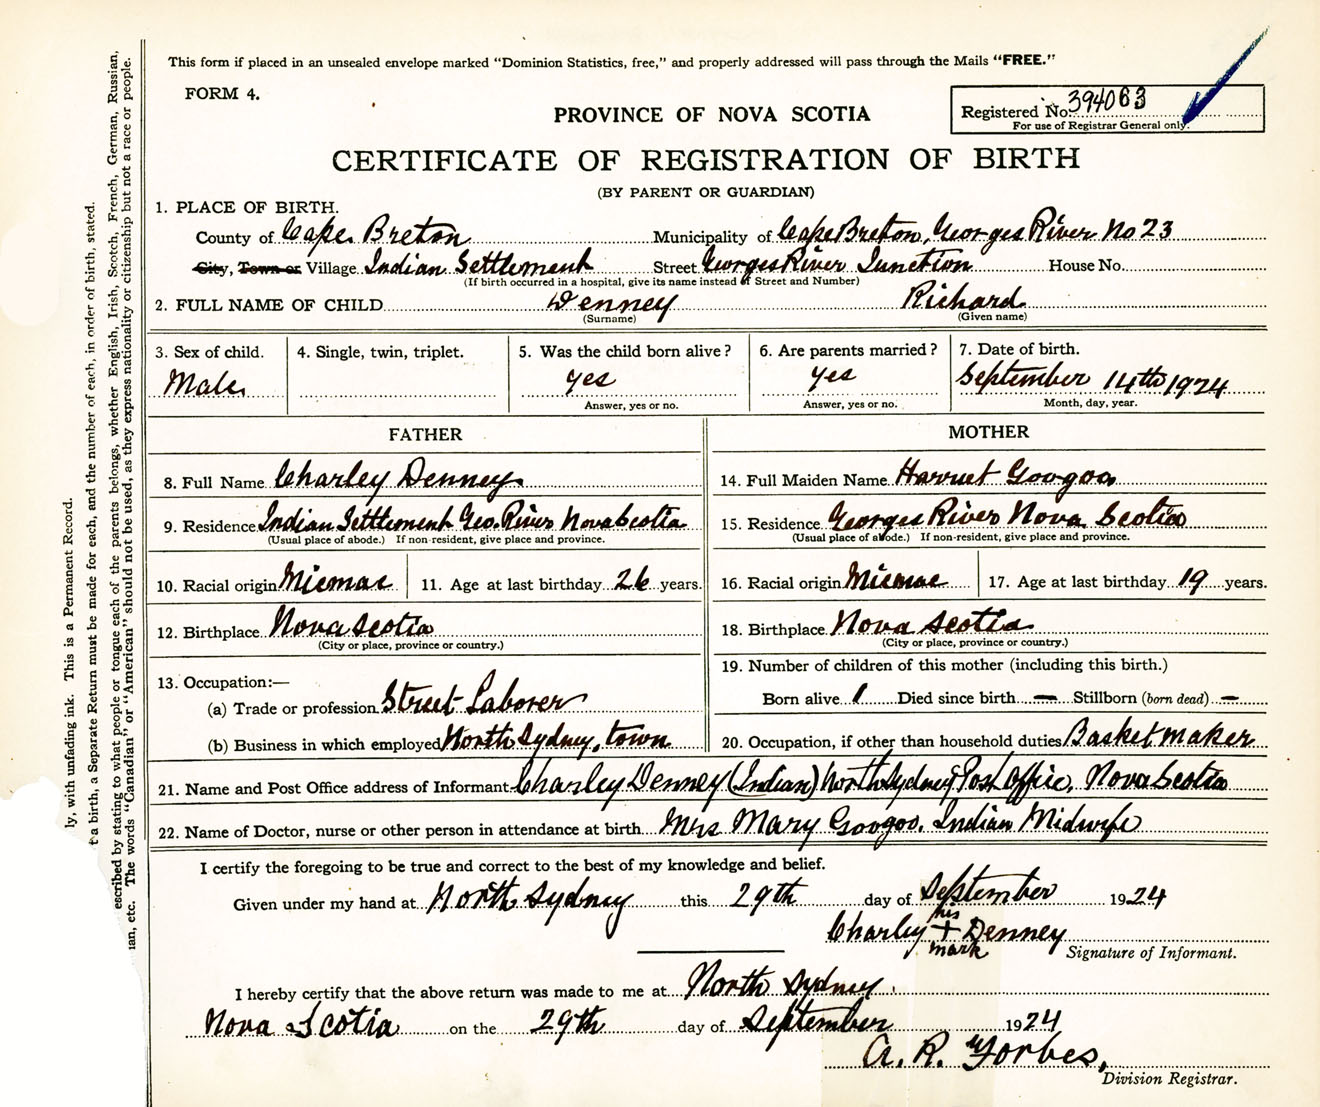 This form if placed in an unsealed envelope marked "Dominion Statistics, free," and properly addressed will pass through the Mails "FREE."
FORM 4.
Registered No. 394063
For use of Registrar General only.
PROVINCE OF NOVA SCOTIA
CERTIFICATE OF REGISTRATION OF BIRTH
(BY PARENT OR GUARDIAN)
1. PLACE OF BIRTH.
County of Cape Breton Municipality of Cape Breton, Georges River No 23
City, Town or Village Indian Settlement Street Georges River Junction House No.
(If birth occurred in a hospital, give its name instead of Street and Number)
2. FULL NAME OF CHILD Denney Richard
(Surname) (Given name)
3. Sex of child. 4. Single, twin, triplet. 5. Was the child born alive? 6. Are parents married? 7. Date of birth.
Male yes yes September 14th 1924
Answer, yes or no. Answer, yes or no. Month, day, year.
FATHER MOTHER
8. Full Name Charley Denney 14. Full Maiden Name Harriet Googoo
9. Residence Indian Settlement Geo. River Nova Scotia 15. Residence Georges River Nova Scotia
(Usual place of abode.) If non-resident, give place and province. (Usual place of abode.) If non-resident, give place and province.
10. Racial origin Micmac 11. Age at last birthday 26 years. 16. Racial origin Micmac 17. Age at last birthday 19 years.
12. Birthplace Nova Scotia 18. Birthplace Nova Scotia
(City or place, province or country.) (City or place, province or country.)
13. Occupation:— 19. Number of children of this mother (including this birth.)
(a) Trade or profession Street Laborer Born alive 1 Died since birth — Stillborn (born dead) —
(b) Business in which employed North Sydney, town 20. Occupation, if other than household duties Basket maker
21. Name and Post Office address of Informant Charley Denney (Indian) North Sydney Post Office, Nova Scotia
22. Name of Doctor, nurse or other person in attendance at birth Mrs Mary Googoo, Indian Midwife
I certify the foregoing to be true and correct to the best of my knowledge and belief.
Given under my hand at North Sydney this 29th day of September 1924
his
Charley + Denney
mark Signature of Informant.
I hereby certify that the above return was made to me at North Sydney,
Nova Scotia on the 29th day of September 1924
A. R. Forbes,
Division Registrar.
ly, with unfading ink. This is a Permanent Record.
t a birth, a Separate Return must be made for each, and the number of each, in order of birth, stated.
escribed by stating to what people or tongue each of the parents belongs, whether English, Irish, Scotch, French, German, Russian,
ian, etc. The words "Canadian" or "American" should not be used, as they express nationality or citizenship but not a race or people.